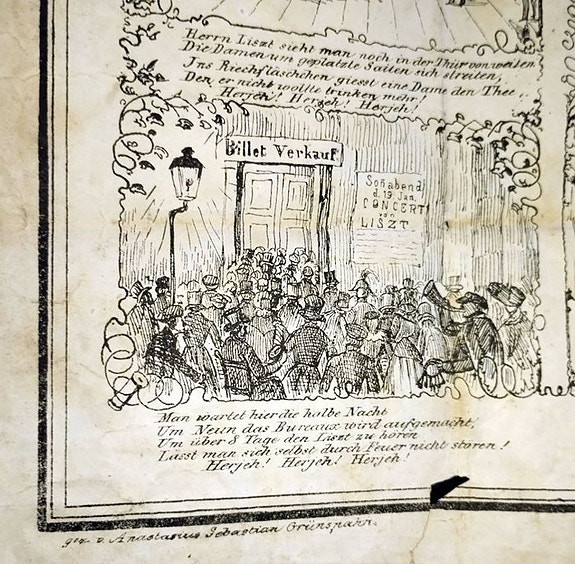 Herrn Liszt sieht man noch in der Thür von weiten
Die Damen um geplatzte Saiten sich streiten,
Jns Riechfläschchen giesst eine Dame den Thee
Den er nicht wollte trinken mehr!
Herjeh! Herjeh! Herjeh!
Billet Verkauf
Soñabend
d. 19 Jan.
CONCERT
von
LISZT
Man wartet hier die halbe Nacht
Um Neun das Bureaux wird aufgemacht,
Um über 8 Tage den Liszt zu hören
Lässt man sich selbst durch Feuer nicht stören!
Herjeh! Herjeh! Herjeh!
gez. v. Anastasius Sebastian Grünspahn.